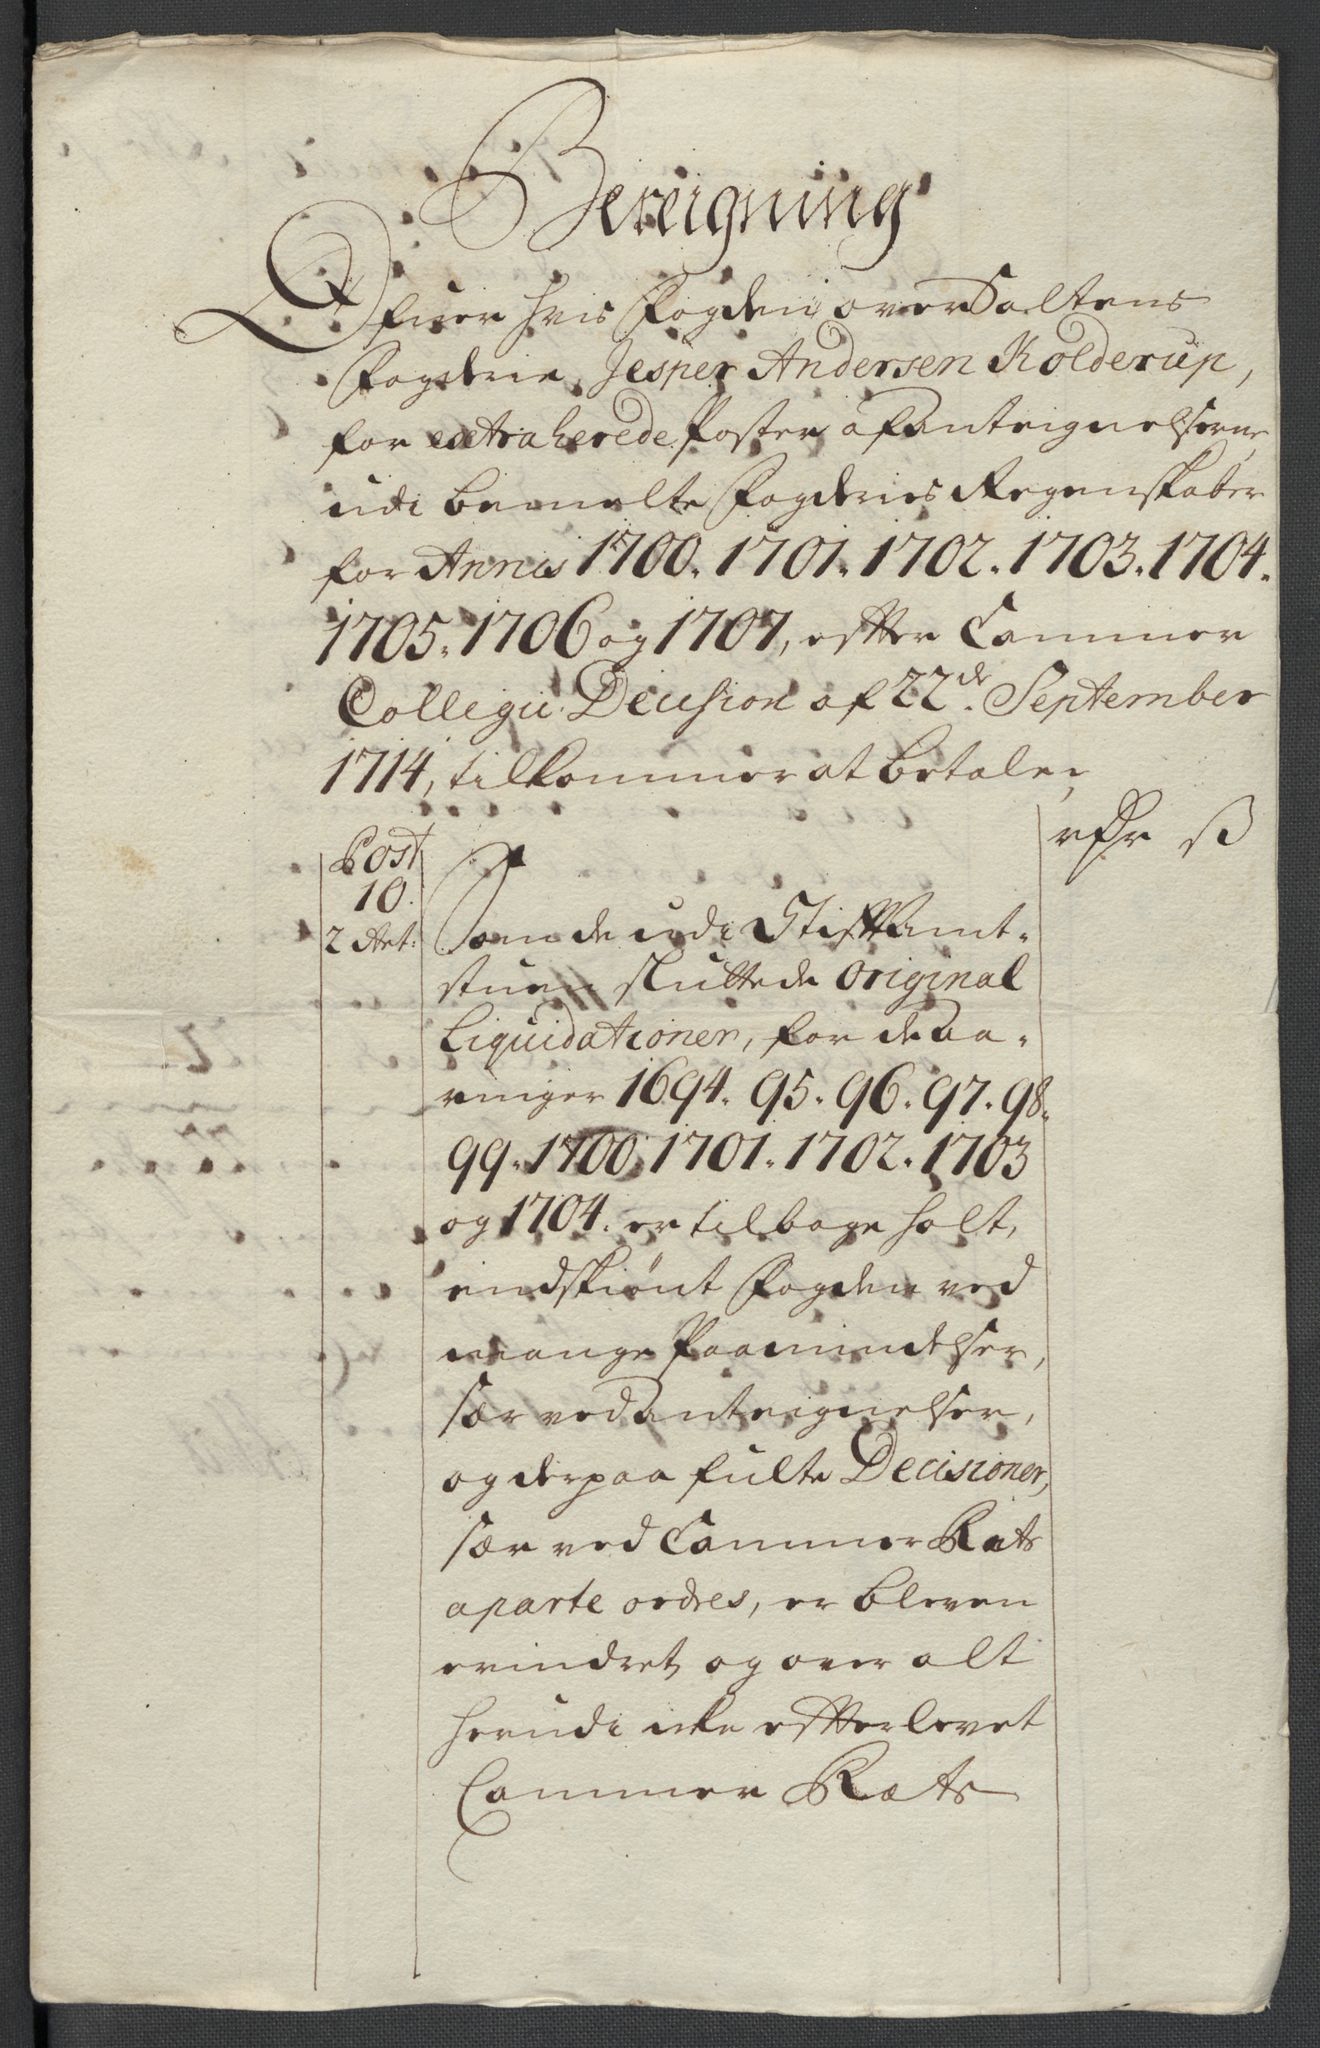 Bereigning
Ofuer hvis Fogden over Saltens
Fogderie, Jesper Andersen Kolderup,
for extraherede Poster af Anteignelserne
udi bemelte Fogderies Regenskaber
for Annis 1700. 1701. 1702. 1703. 1704.
1705. 1706 og 1707, efter Cammer
Collegii Decision af 22de September
1714, tilkommer at betale,
rdr ß
Post
10.
2 Art:
Som de udi Stiftamt-
stuen sluttede Original
Liquidationer, for de Aa-
ringer 1694. 95. 96. 97. 98.
99. 1700. 1701. 1702. 1703
og 1704. er tilbage holt,
endskiønt Fogden ved
mange Paamindelser,
sær ved Anteignelser,
og derpaa fulte Decisioner,
sær ved Cammer Rets
aparte ordres, er bleven
erindret, og over alt
herudi icke efterlevet
Cammer Rets